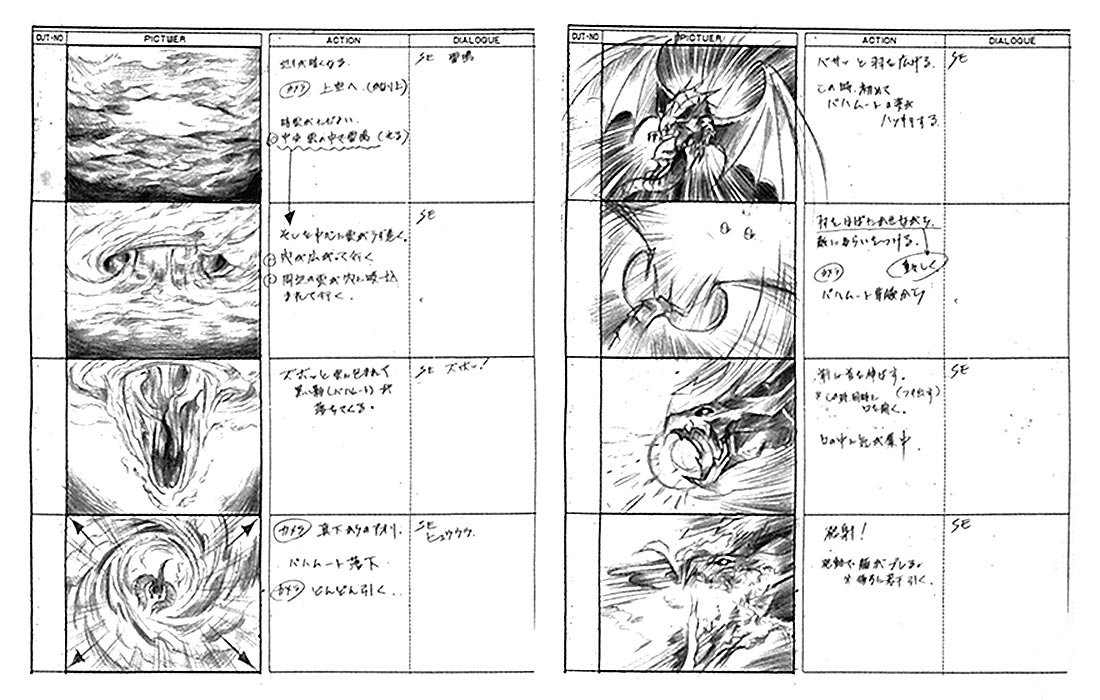 CUT-NO PICTUER ACTION DIALOGUE
辺りが暗くなる。
SE 雷鳴
カメラ 上空へ。(かなり上)
中央 雲の中で雷鳴(光る)
SE
そして中心に雲がうず巻く。
穴が広がって行く
周辺の雲が穴に吸い込
まれて行く。
ズボッと雲に包まれて
黒い影(バハムート)が
落ちてくる。
SE ズボッ!
カメラ 真下からのアオリ。
バハムート落下
カメラ どんどん引く..
SE
ヒュウウウ.
CUT-NO PICTUER ACTION DIALOGUE
バサッと羽を広げる。
この時、初めて
バハムートの姿が
ハッキリする
SE
羽をはばたかせながら、
敵にねらいをつける。
激しく
カメラ
バハムート背後から
SE
前に首を伸ばす。
(つき出す)
※この時、同時に
口を開く。
口の中に光が集中
SE
発射!
反動で顔がブレる。
SE